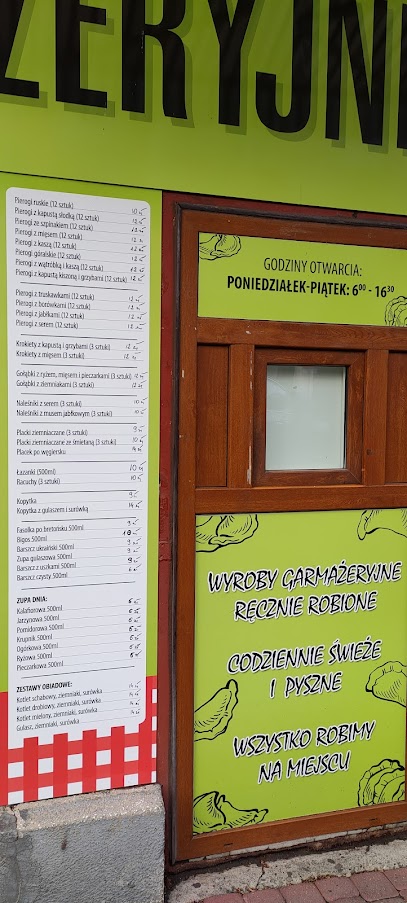 ŻERYJN
Pierogi ruskie (12 sztuk) 10 zł
Pierogi z kapustą słodką (12 sztuk) 12 zł
Pierogi ze szpinakiem (12 sztuk) 12 zł
Pierogi z mięsem (12 sztuk) 12 zł
Pierogi z kaszą (12 sztuk) 12 zł
Pierogi góralskie (12 sztuk) 12 zł
Pierogi z wątróbką i kaszą (12 sztuk) 12 zł
Pierogi z kapustą kiszoną i grzybami (12 sztuk) 12 zł
Pierogi z truskawkami (12 sztuk) 12 zł
Pierogi z borówkami (12 sztuk) 12 zł
Pierogi z jabłkami (12 sztuk) 12 zł
Pierogi z serem (12 sztuk) 12 zł
Krokiety z kapustą i grzybami (3 sztuki) 12 zł
Krokiety z mięsem (3 sztuki) 12 zł
Gołąbki z ryżem, mięsem i pieczarkami (3 sztuki) 12 zł
Gołąbki z ziemniakami (3 sztuki) 12 zł
Naleśniki z serem (3 sztuki) 10 zł
Naleśniki z musem jabłkowym (3 sztuki) 10 zł
Placki ziemniaczane (3 sztuki) 9 zł
Placki ziemniaczane ze śmietaną (3 sztuki) 10 zł
Placek po węgiersku 14 zł
Łazanki (500ml) 10 zł
Racuchy (3 sztuki) 10 zł
Kopytka 9 zł
Kopytka z gulaszem i surówką 14 zł
Fasolka po bretońsku 500ml 9 zł
Bigos 500ml 10 zł
Barszcz ukraiński 500ml 9 zł
Zupa gulaszowa 500ml 9 zł
Barszcz z uszkami 500ml 9 zł
Barszcz czysty 500ml 6 zł
ZUPA DNIA:
Kalafiorowa 500ml 6 zł
Jarzynowa 500ml 6 zł
Pomidorowa 500ml 6 zł
Krupnik 500ml 6 zł
Ogórkowa 500ml 6 zł
Ryżowa 500ml 6 zł
Pieczarkowa 500ml 6 zł
ZESTAWY OBIADOWE:
Kotlet schabowy, ziemniaki, surówka 14 zł
Kotlet drobiowy, ziemniaki, surówka 14 zł
Kotlet mielony, ziemniaki, surówka 14 zł
Gulasz, ziemniaki, surówka 14 zł
GODZINY OTWARCIA:
PONIEDZIAŁEK-PIĄTEK: 6⁰⁰ - 16³⁰
WYROBY GARMAŻERYJNE
RĘCZNIE ROBIONE
CODZIENNIE ŚWIEŻE
I PYSZNE
WSZYSTKO ROBIMY
NA MIEJSCU